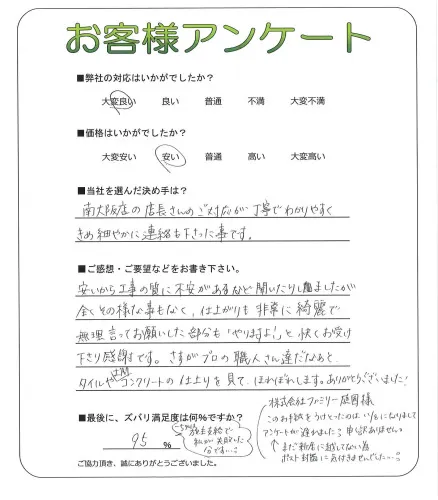 お客様アンケート
■弊社の対応はいかがでしたか？
大変良い 良い 普通 不満 大変不満
■価格はいかがでしたか？
大変安い 安い 普通 高い 大変高い
■当社を選んだ決め手は？
南大阪店の店長さんのご対応が丁寧でわかりやすく
きめ細やかに連絡も下さった事です。
■ご感想・ご要望などをお書き下さい。
安いから工事の質に不安があるなど聞いたりしましたが
全くその様な事もなく、仕上がりも非常に綺麗で
無理言ってお願いした部分も「やりますよ!」と快くお受け
下さり感謝です。さすがプロの職人さん達だなあと
タイルや土間コンクリートの仕上りを見て、ほれぼれします。ありがとうございました!
■最後に、ズバリ満足度は何%ですか？
95 %
-5%は
施主支給で
私が失敗した
分です…。
株式会社ファミリー庭園様
このお手紙をうけとったのは になりまして
アンケートが遅れました? 申し訳ありません。
↑まだ新居に越してない為
ポスト封筒に気付きませんでした…。
ご協力頂き、誠にありがとうございました。